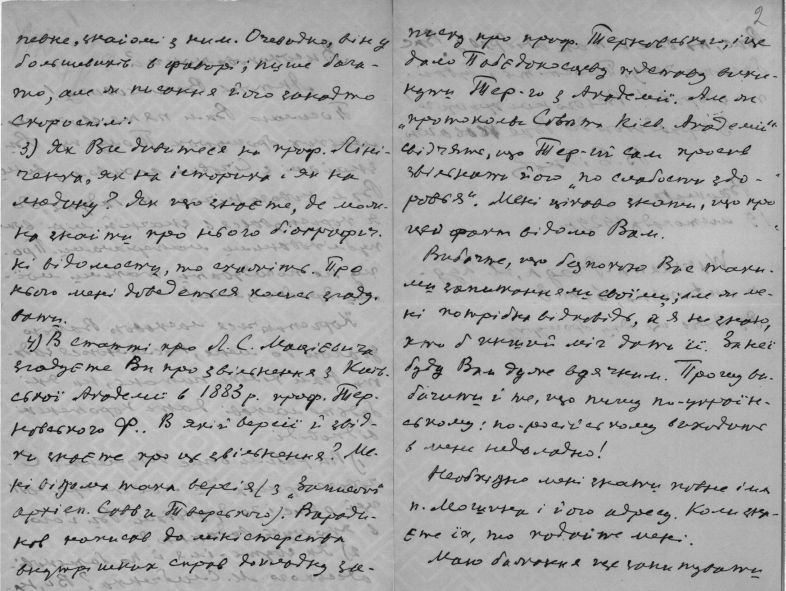 певне, знайомі з ним. Очевидно, він у
большевиків в фаворі; пише бага-
то, але ж писання його занадто
скороспілі.
3) Як Ви дивитеся на проф. Ліні-
ченка, як на історика і як на
людину? Як що знаєте, де мож-
на знайти про нього біографич-
кі відомости, то скажіть. Про
нього мені доведеться колись згаду-
вати.
4) В статті про Л. С. Мацієвича
згадуєте Ви про звільнення з Київ-
ської Академії в 1883 р. проф. Тер-
новського Ф.. В якій версії й звід-
ки знаєте про це звільнення? Ме-
ні відома така версія (з „Записок"
архієп. Савви Тверського).
написав до міністерства
внутрішніх справ докладну за-
2
писку про проф. Терновського, і це
дало Побєдоносцеву підставу вики-
нути Тер-го з Академії. Але ж
„протоколы Совѣта Кіев. Академіи"
свідчать, що Тер-ий сам просив
звільнити його „по слабости здо-
ровья". Мені цікаво знати, що про
цей факт відомо Вам.
Вибачте, що безпокою Вас таки-
ми запитаннями своїми; але ж ме-
ні потрібна відповідь, а я не знаю,
хто б инший міг дати її. За неї
буду Вам дуже вдячним. Прошу ви-
бачити й те, що пишу по-україн-
ському: по-російському виходить
в мене недоладно!
Необхідно мені знати повне імя
п. Могиука і його адресу. Коли зна-
єте їх, то подайте мені.
Маю бажання ще запитувати